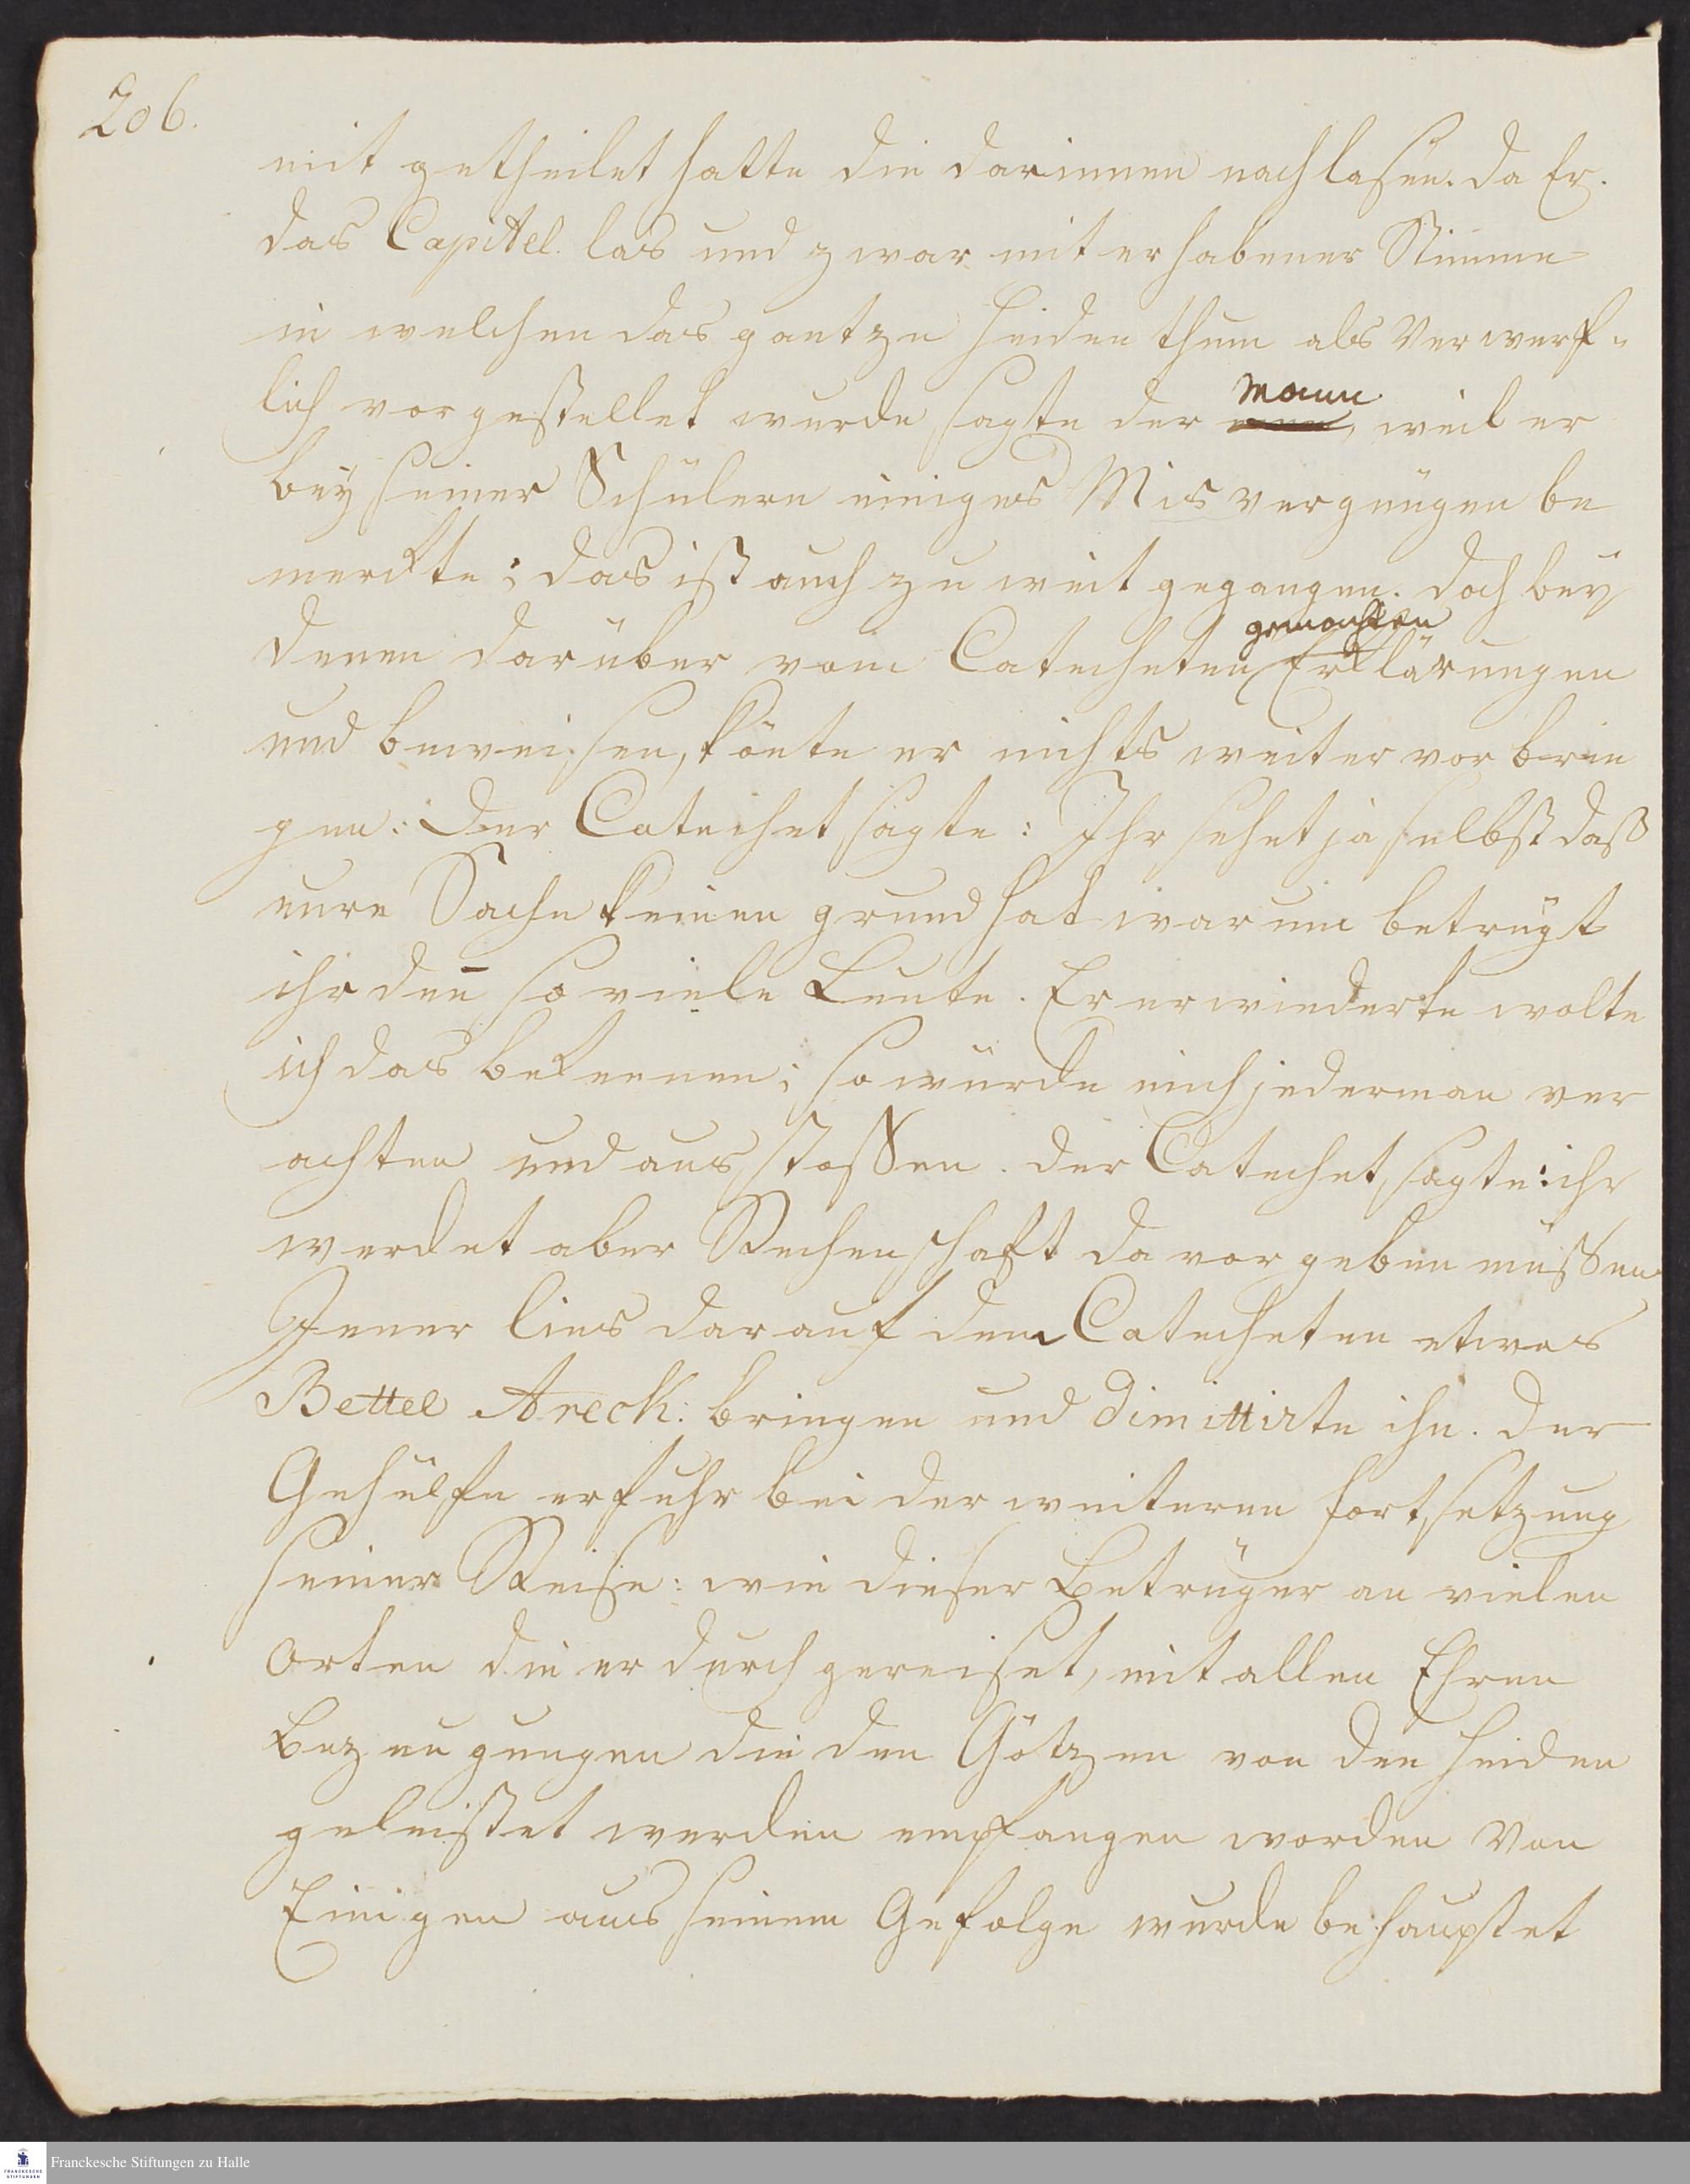 206.
mit getheilet hatte die darinnen nachlasen. da Er.
das Capitel las und zwar mit erhabener Stimme
in welchen das gantze Heidenthum als Verwerf-
lich vorgestellet wurde sagte der Mann, weil er
bey seiner Schülern einiges Misvergnügen be
merckte; das ist auch zu weit gegangen. doch bey
denen darüber vom Catecheten gemachten Erklärungen
und beweisen, könte er nichts weiter vor brin
gen. Der Catechet sagte: Ihr sehet ja selbst daß
eure Sache keinen grund hat warum betrügt
ihr den̄ so viele Leute. Er erwiederte wolte
ich das bekennen; so würde mich jederman ver
achten und aus stoßen. der Catechet sagte: ihr
werdet aber Rechenschaft davor geben müßen
Jener lies darauf dem Catecheten etwas
Bettel Areck: bringen und dimittirte ihn. der
Gehülfe erfuhr bei der weiteren fortsetzung
seiner Reise: wie dieser Betrüger an vielen
orten die er durch gereiset, mit allen Ehren
Bezeugungen die den Götzen von den Heiden
geleistet werden empfangen worden Von
Einigen aus seinem Gefolge wurde behauptet
FRANCKESCHE STIFTUNGEN
Franckesche Stiftungen zu Halle